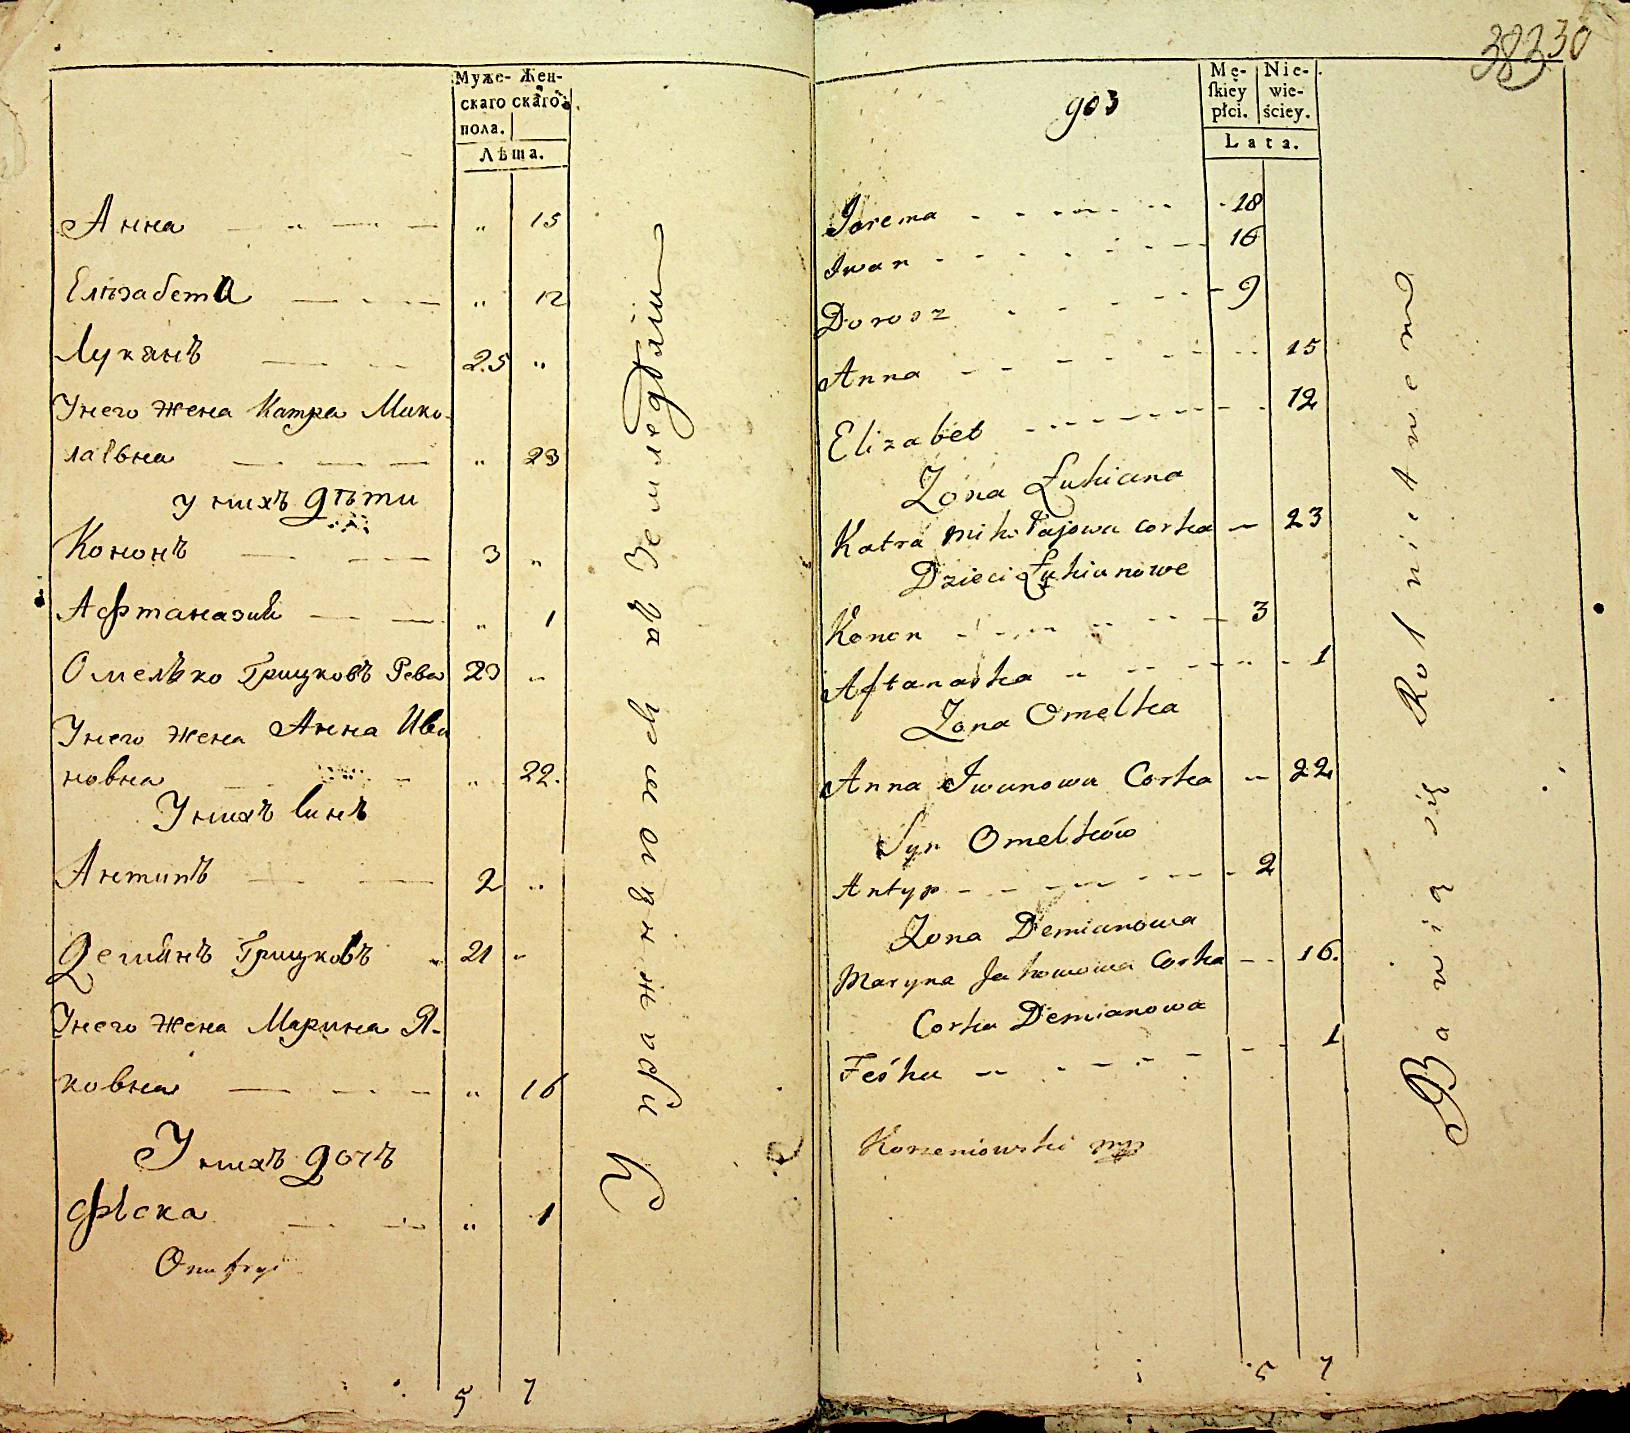 Муже- Жен-
скаго скаго
пола.
Лѣта.
Анна " 15
Елѣзабета " 12
Луканъ 25 "
Унего жена Катра Мико-
лаевна " 23
у нихъ дѣти
Кононъ 3 "
Афтаназий " 1
Омелько Грицковъ Рева 23 "
Унего жена Анна Ива
новна " 22.
Унихъ синъ
Антипъ 2 "
Демиянъ Грицковъ 21 "
Унего жена Марина Я-
ковна " 16
Унихъ дочъ
Фѣска " 1
Onufryi
5 7
Упражняются в земледѣлии
38330
903
Mę- Nie-
skiey wie-
płci. ściey.
Lata.
Jarema 18
Iwan 16
Dorosz 9
Anna 15
Elizabet 12
Zona Łukiana
Katra Mikołajowa corka 23
Dzieci Łukianowe
Konon 3
Aftanaska 1
Zona Omelka
Anna Iwanowa Corka 22
Syn Omelków
Antyp 2
Zona Demianowa
Maryna Jakowowa Corka 16.
Corka Demianowa
Feśka 1
Korzeniowski mp
5 7
Bawią się Rolnictwem